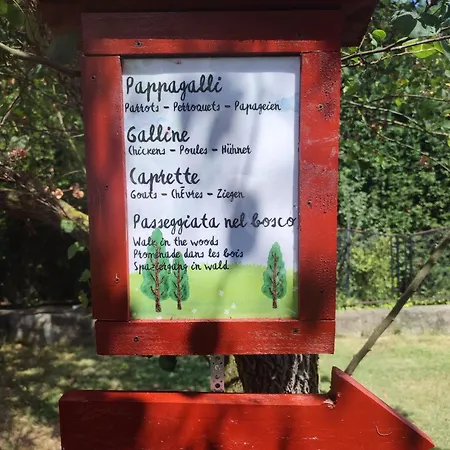 Pappagalli
Parrots - Perroquets - Papageien
Galline
Chickens - Poules - Hühnet
Caprette
Goats - ChÈvtes - Ziegen
Passeggiata nel bosco
Walk in the woods
Promenade dans les bois
Spaziergang in wald